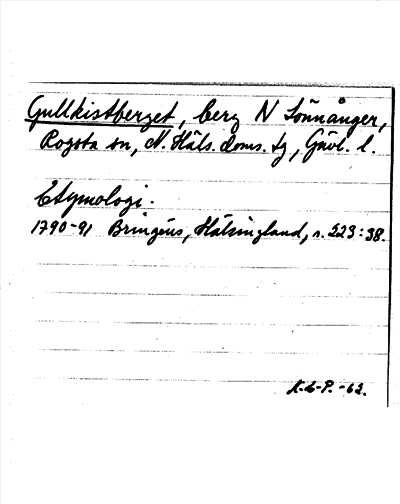 Gullkistberget, berg N Sönnånger,
Rogsta sn, N. Häls. doms. tg, Gävl. l.
Etymologi.
1790-91 Bringéus, Hälsingland, s. 223:38.
K.L.P. -62.